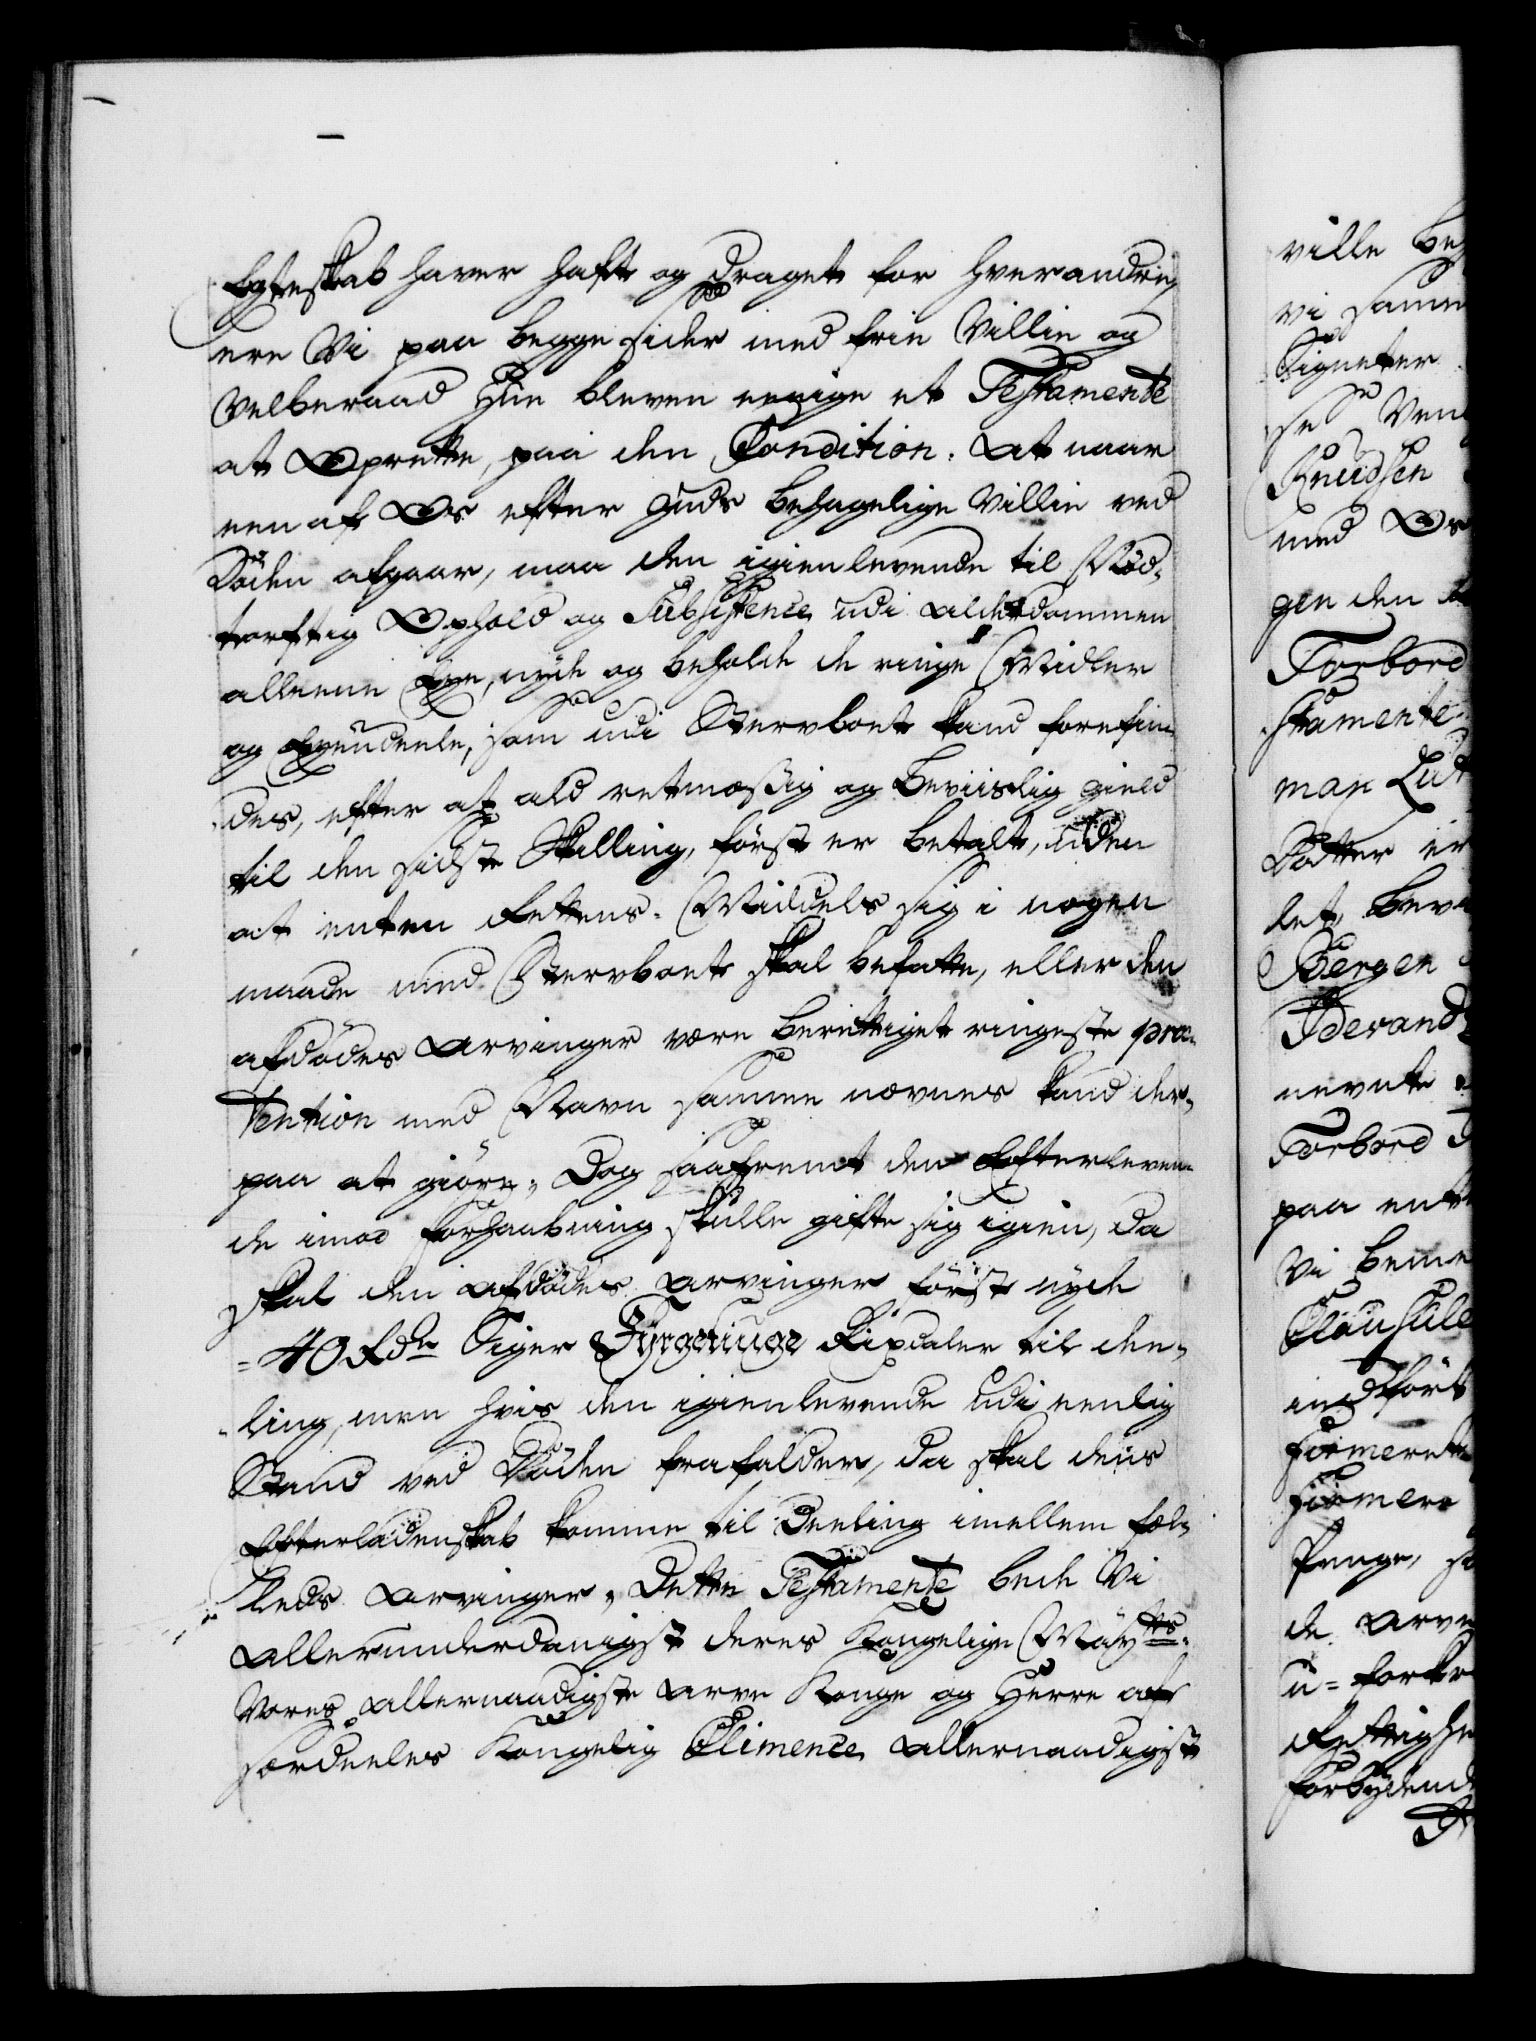 Egteskab haver haft og draget for hverandre,
ere Vi paa begge sider med frie Villie og
Velberaad Hue bleven eenige et Testamente
at Oprette, paa den Condition. At naar
een af Os efter Guds behagelige Villie ved
Döden afgaar, maa den igienlevende til Nød-
törftig Ophold og Subsistence udi Alderdommen
alleene Eye, nyde og beholde de ringe Midler
og Eyendeele, som udi Stervboet kand forefin-
des, efter at ald retmæssig og beviislig gield
til den sidste Skilling, först er betalt, uden
at enten Rettens Middels sig i nogen
maade med Stervboet skal befatte, eller den
afdödes Arvinger være berettiget ringeste præ-
tention med Navn samme nævnes kand der-
paa at giöre, Dog saafremt den Efterleven-
de imod forhaabning skulle gifte sig igien, da
skal den afdödes Arvinger först nyde
40 Rdr Siger Fyrgetiuge Rixdaler til dee-
ling, men hvis den igienlevende udi eenlig
Stand ved Döden frafalder, da skal dens
Efterladenskab komme til Deeling imellem fæl-
leds Arvinger, Dette Testamente bede Vi
allerunderdanigst deres Kongelige Mayts
Vores allernaadigste Arve Konge og Herre af
særdeeles Kongelig Clemence allernaadigst
ville
vi samm
Signeter
Knudsen
med Os
gen den
Torbord
stamente
man
Datter
let,
Bergen
nevnte
Torbord
paa
Vi
Clausule
indfört
Penge,
de Arve